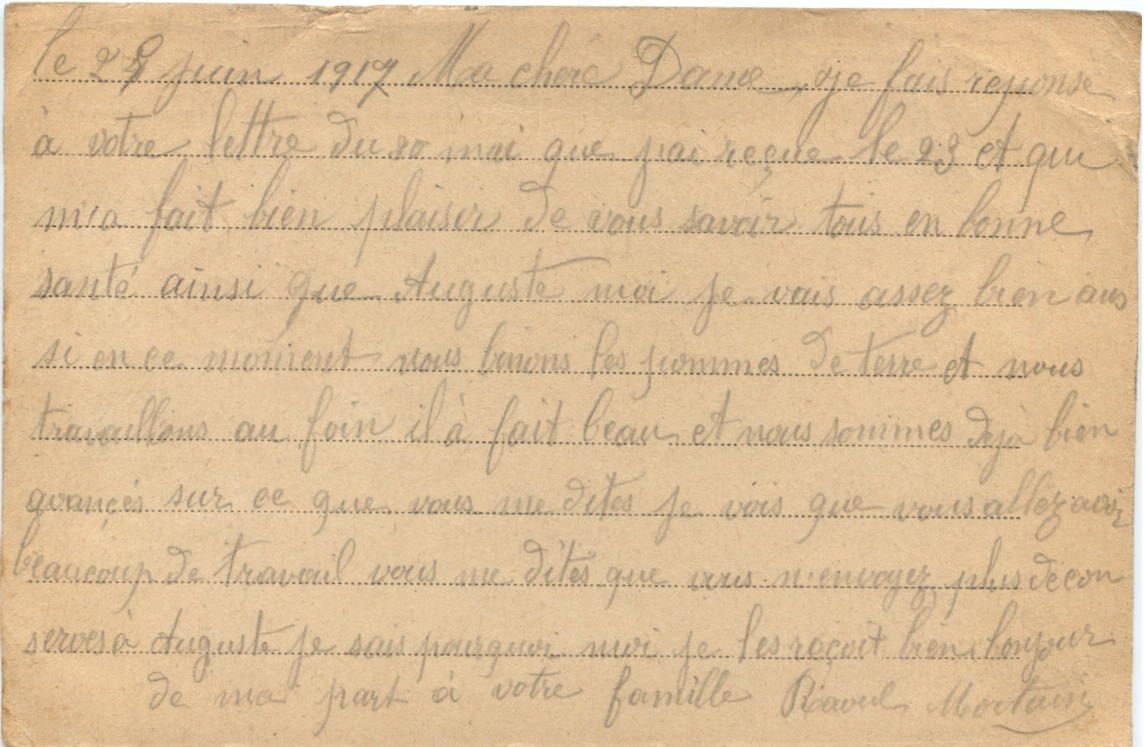 le 28 juin 1917 Ma chère Dame, je fais reponse
à votre lettre du 20 mai que j'ai reçue le 23 et qui
m'a fait bien plaisir de vous savoir tous en bonne
santé ainsi que Auguste moi je vais assez bien aus
si en ce moment nous binons les pommes de terre et nous
travaillons au foin il à fait beau et nous sommes dejà bien
avançés sur ce que vous me dites je vois que vous allez avoir
beaucoup de travail vous me dîtes que vous n'envoyez plus de con
serves à Auguste je sais pourquoi moi je les reçoit bien bonjour
de ma part à votre famille Raoul